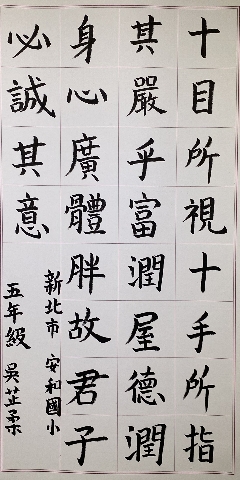 十目所視十手所指
其嚴乎富潤屋德潤
身心廣體胖故君子
必誠其意
新北市 安和國小
五年級 吳芷柔